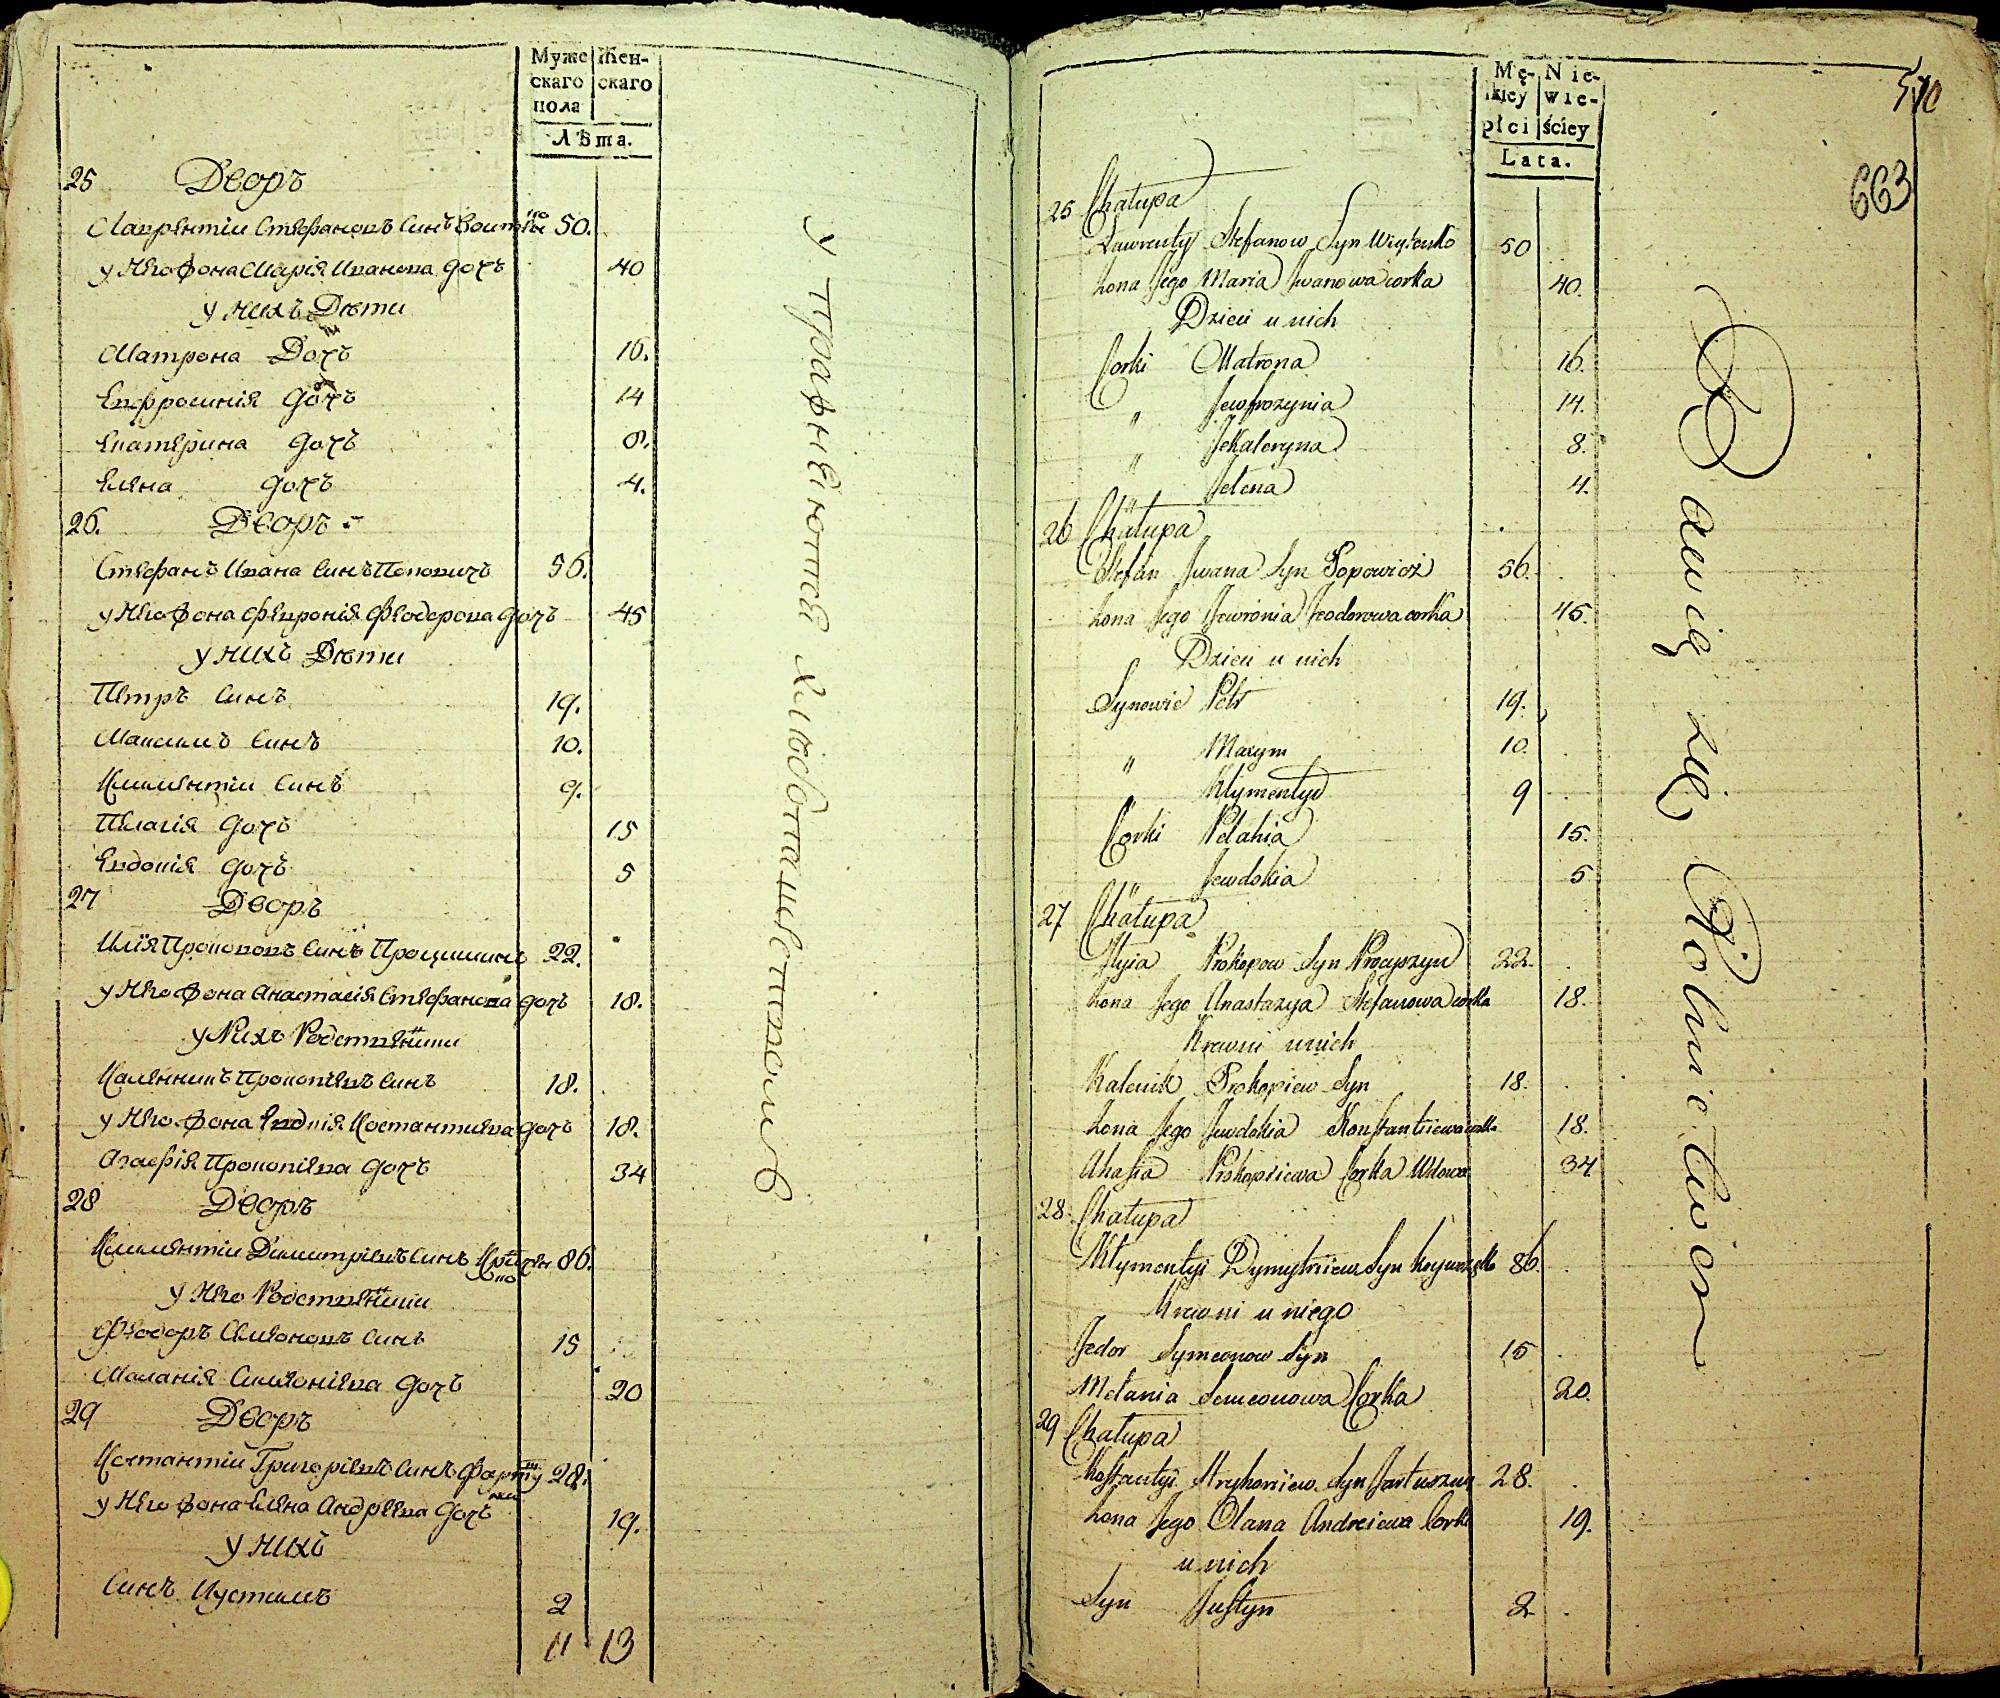 Муже-
скаго
пола
Жен-
скаго
Лѣта.
25 Дворъ
Лаврентіи Стефановъ Синъ 50.
у Него Жона Марія Иванова дочь 40
у нихъ Дѣти
Матрона Дочь 16.
Евфросинія дочь 14
Екатерина дочь 8.
Елена дочь 4.
26. Дворъ
Стефанъ Ивана Синъ Поповичъ 56.
у Него Жона Февронія Феодорова дочь 45
у нихъ Дѣти
Петръ Синъ 19.
Максимъ Синъ 10.
Климентіи Синъ 9.
Пелагія дочь 15
Евдокія дочь 5
27 Дворъ
Илія Прокоповъ Синъ Процишинъ 22.
у Него Жона Анастасія Стефанова дочь 18.
у Нихъ Родственники
Каленникъ Прокопіевъ Синъ 18.
у Него Жона Евдокія Костантиева дочь 18.
Агафія Прокопіева дочь 34
28 Дворъ
Климентіи Димитріевъ Синъ 86.
у Него Родственники
Феодоръ Симеоновъ Синъ 15
Маланія Симеоніева дочь 20
29 Дворъ
Костантіи Григоріевъ Синъ 28.
у Него Жона Елена Андреева дочь 19.
у нихъ
Синъ Иустинъ 2
11 13
упражняются хлѣбопашествомъ
Mę-
skiey
płci
Nie-
wie-
ściey
Lata.
570
663
25 Chałupa
Ławrenty Stefanow Syn 50
żona Jego Maria Iwanowa corka 40.
Dzieci u nich
Corki Matrona 16.
" Jewfrozynia 14.
" Jekateryna 8.
Jełena 4.
26 Chałupa
Stefan Iwana Syn Popowicz 56.
żona Jego Fewronia Feodorowa corka 45.
Dzieci u nich
Synowie Petr 19.
" Maxym 10.
" Kłymentyi 9
Corki Pełahia 15.
" Jewdokia 5
27 Chałupa
Iłyia Prokopow Syn Procyszyn 22.
żona Jego Anastazya Stefanowa corka 18.
Krewni u nich
Kalenik Prokopiew Syn 18.
żona Jego Jewdokia Konstantiewa corka 18.
Ahafia Prokopiewa Corka Wdowa 34
28. Chałupa
Kłymentyi Dymytriew Syn 86.
Krewni u niego
Fedor Symeonow Syn 15
Mełania Semeonowa Corka 20.
29 Chałupa
Kostantyi Hryhoriew Syn 28.
żona Jego Ołana Andreiewa Corka 19.
u nich
Syn Justyn 2
Bawią się Rolnictwem